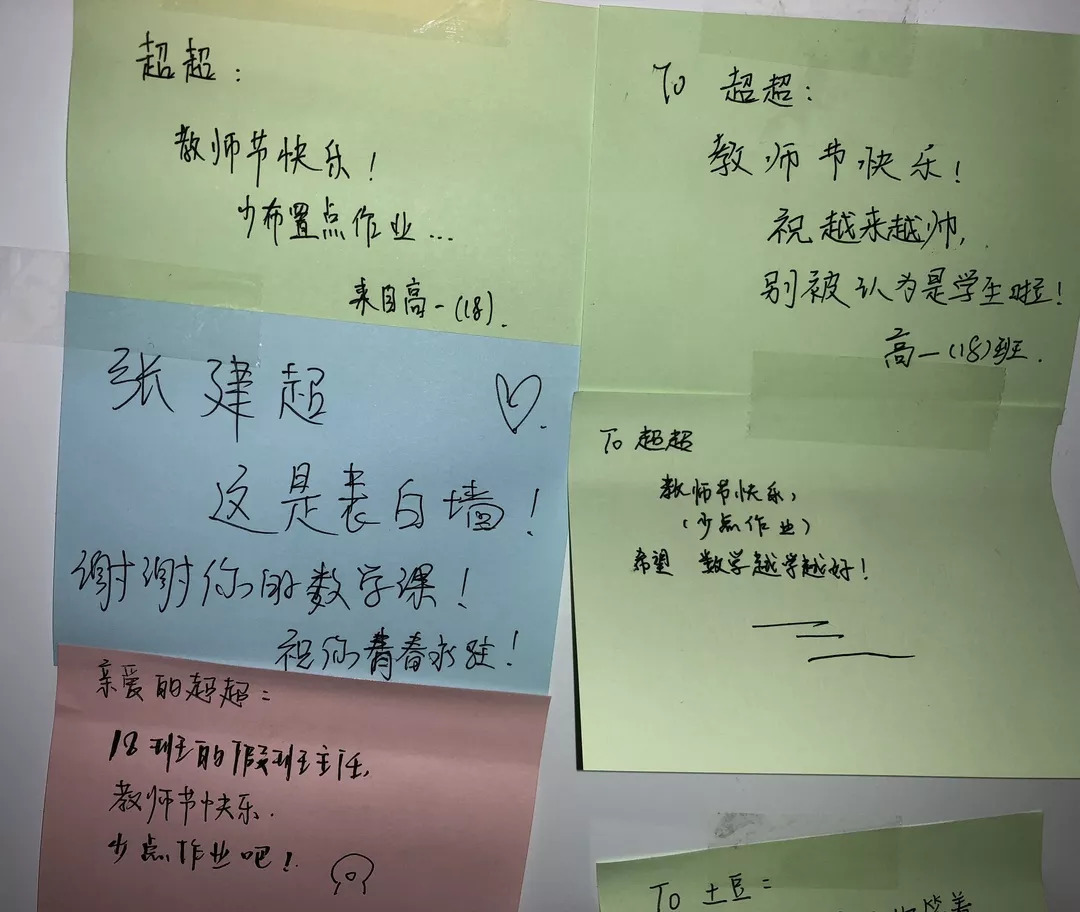 超超：
教师节快乐！
少布置点作业...
来自高一(18).
To 超超：
教师节快乐！
祝越来越帅,
别被认为是学生啦！
高一(18)班.
张建超
这是表白墙！
谢谢你的数学课！
祝你青春永驻！
To 超超
教师节快乐,
(少点作业)
希望 数学越学越好！
亲爱的超超：
18班的假班主任,
教师节快乐.
少点作业吧！
To 土豆：